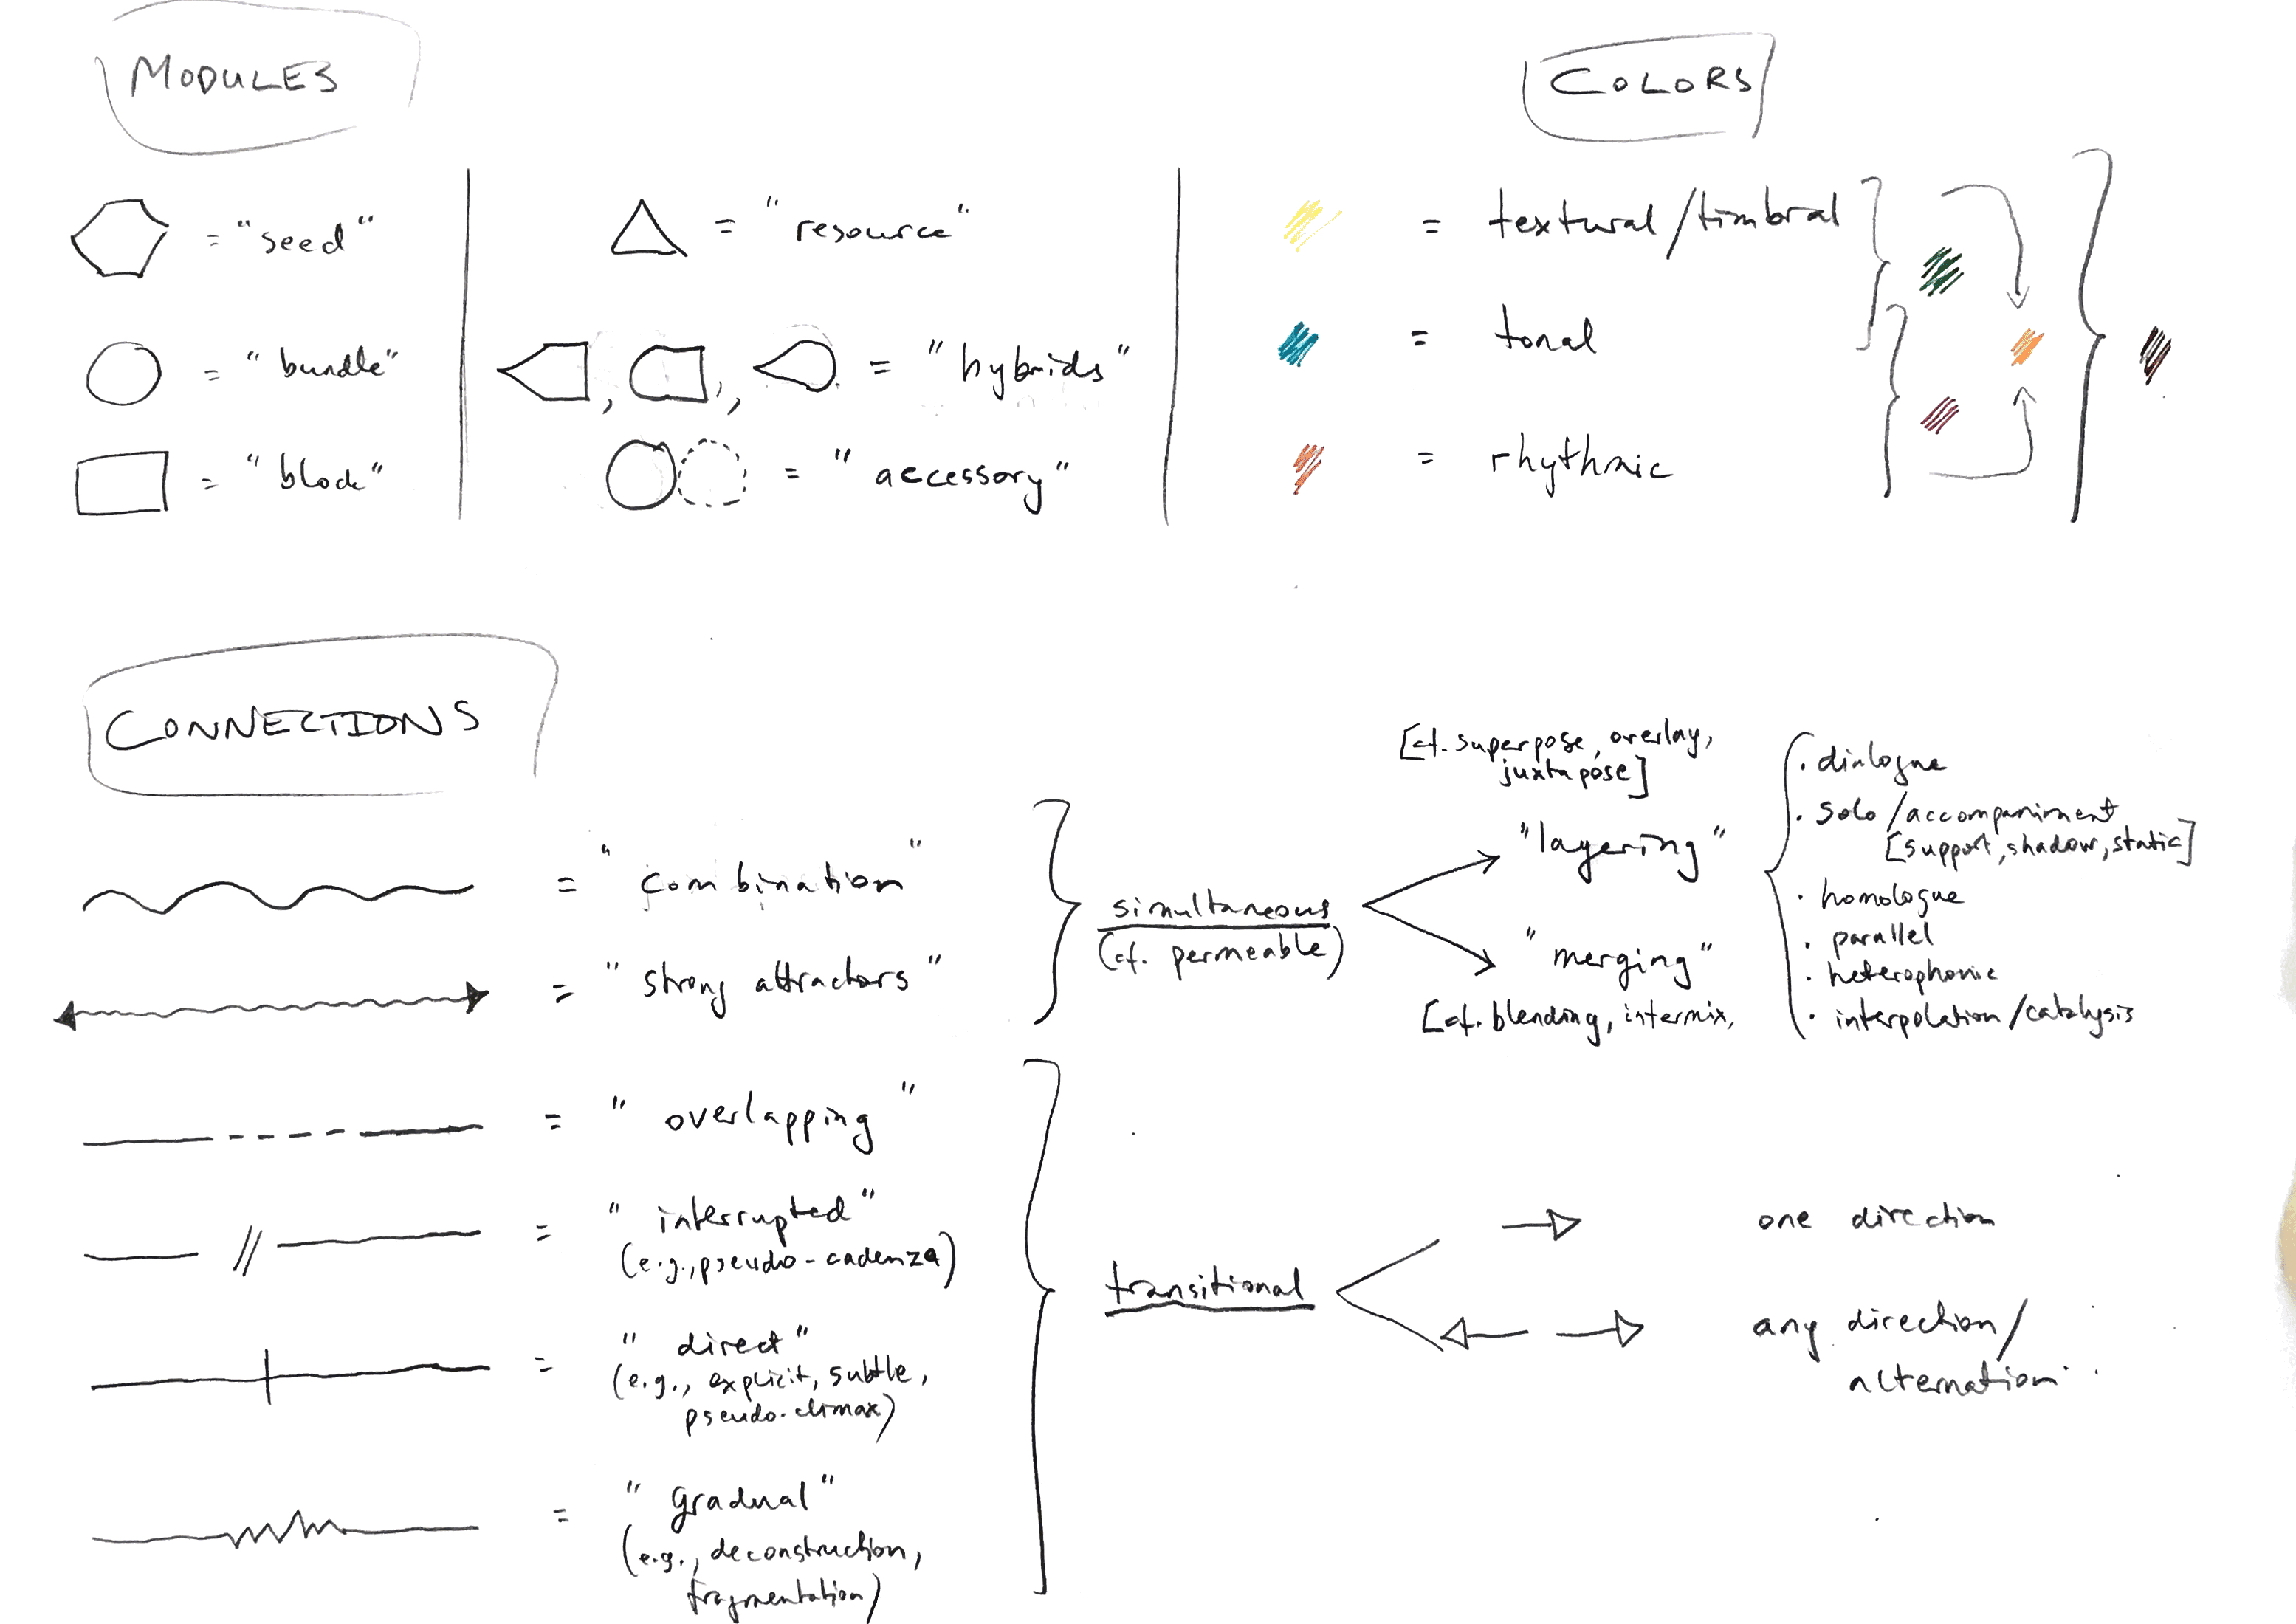 MODULES
= "seed"
= "bundle"
= "block"
= "resource"
, , = "hybrids"
= "accessory"
COLORS
= textural/timbral
= tonal
= rhythmic
CONNECTIONS
= "combination"
= "strong attractors"
simultaneous
(cf. permeable)
[cf. superpose, overlay,
juxtapose]
"layering"
"merging"
[cf. blending, intermix,
· dialogue
· solo/accompaniment
[support, shadow, static]
· homologue
· parallel
· heterophonic
· interpolation/catalysis
= "overlapping"
= "interrupted"
(e.g., pseudo-cadenza)
= "direct"
(e.g., explicit, subtle,
pseudo-climax)
= "gradual"
(e.g., deconstruction,
fragmentation)
transitional
one direction
any direction/
alternation